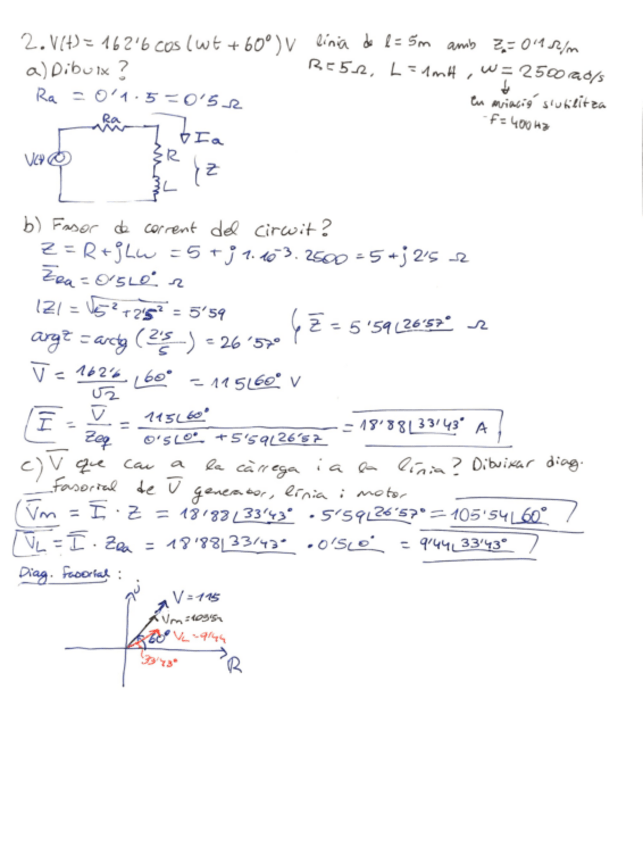 2. V(t) = 162'6 cos (wt + 60°) V línia de l = 5m amb Z = 0'1 Ω/m
a) Dibuix? R = 5Ω, L = 1mH, w = 2500 rad/s
Ra = 0'1 · 5 = 0'5 Ω
En aviació s'utilitza
F = 400Hz
Ra
Ia
V(t)
R
Z
L
b) Fasor de corrent del circuit?
Z = R + jLw = 5 + j 1·10⁻³ · 2500 = 5 + j 2'5 Ω
Z̅Ra = 0'5∟0° Ω
|Z| = √5² + 2'5² = 5'59
arg Z = arctg (2'5/5) = 26'57°
Z̅ = 5'59∟26'57° Ω
V̅ = 162'6/√2 ∟60° = 115∟60° V
I̅ = V̅/Zeq = 115∟60° / 0'5∟0° + 5'59∟26'57 = 18'88∟33'43° A
c) V̅ que cau a la càrrega i a la línia? Dibuixar diag.
Fasorial de V̅ generador, línia i motor
V̅m = I̅ · Z = 18'88∟33'43° · 5'59∟26'57° = 105'54∟60°
V̅L = I̅ · ZRa = 18'88∟33'43° · 0'5∟0° = 9'44∟33'43°
Diag. Fasorial :
j
V = 115
Vm = 105'54
60°
VL = 9'44
33'43°
R